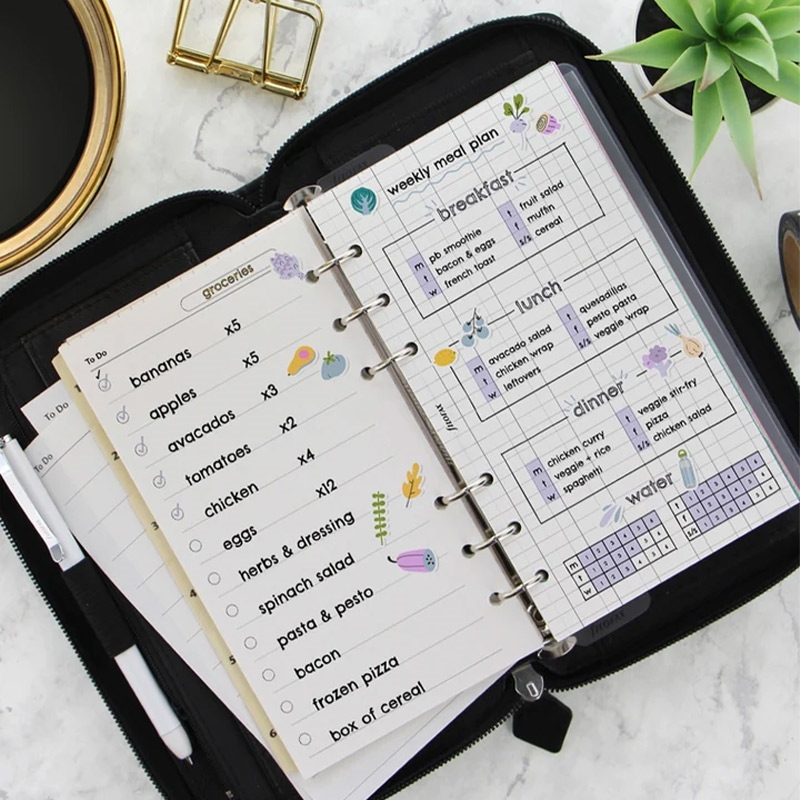 groceries
To Do
bananas x5
apples x5
avacados x3
tomatoes x2
chicken x4
eggs x12
herbs & dressing
spinach salad
pasta & pesto
bacon
frozen pizza
box of cereal
To Do
To Do
2
3
4
5
6
filofax
weekly meal plan
breakfast
m pb smoothie
t bacon & eggs
w french toast
t fruit salad
f muffin
s/s cereal
lunch
m avacado salad
t chicken wrap
w leftovers
t quesadillas
f pesto pasta
s/s veggie wrap
dinner
m chicken curry
t veggie + rice
w spaghetti
t veggie stir-fry
f pizza
s/s chicken salad
water
m 1 2 3 4 5 6
t 1 2 3 4 5 6
w 1 2 3 4 5 6
t 1 2 3 4 5 6
f 1 2 3 4 5 6
s/s 1 2 3 4 5 6
filofax